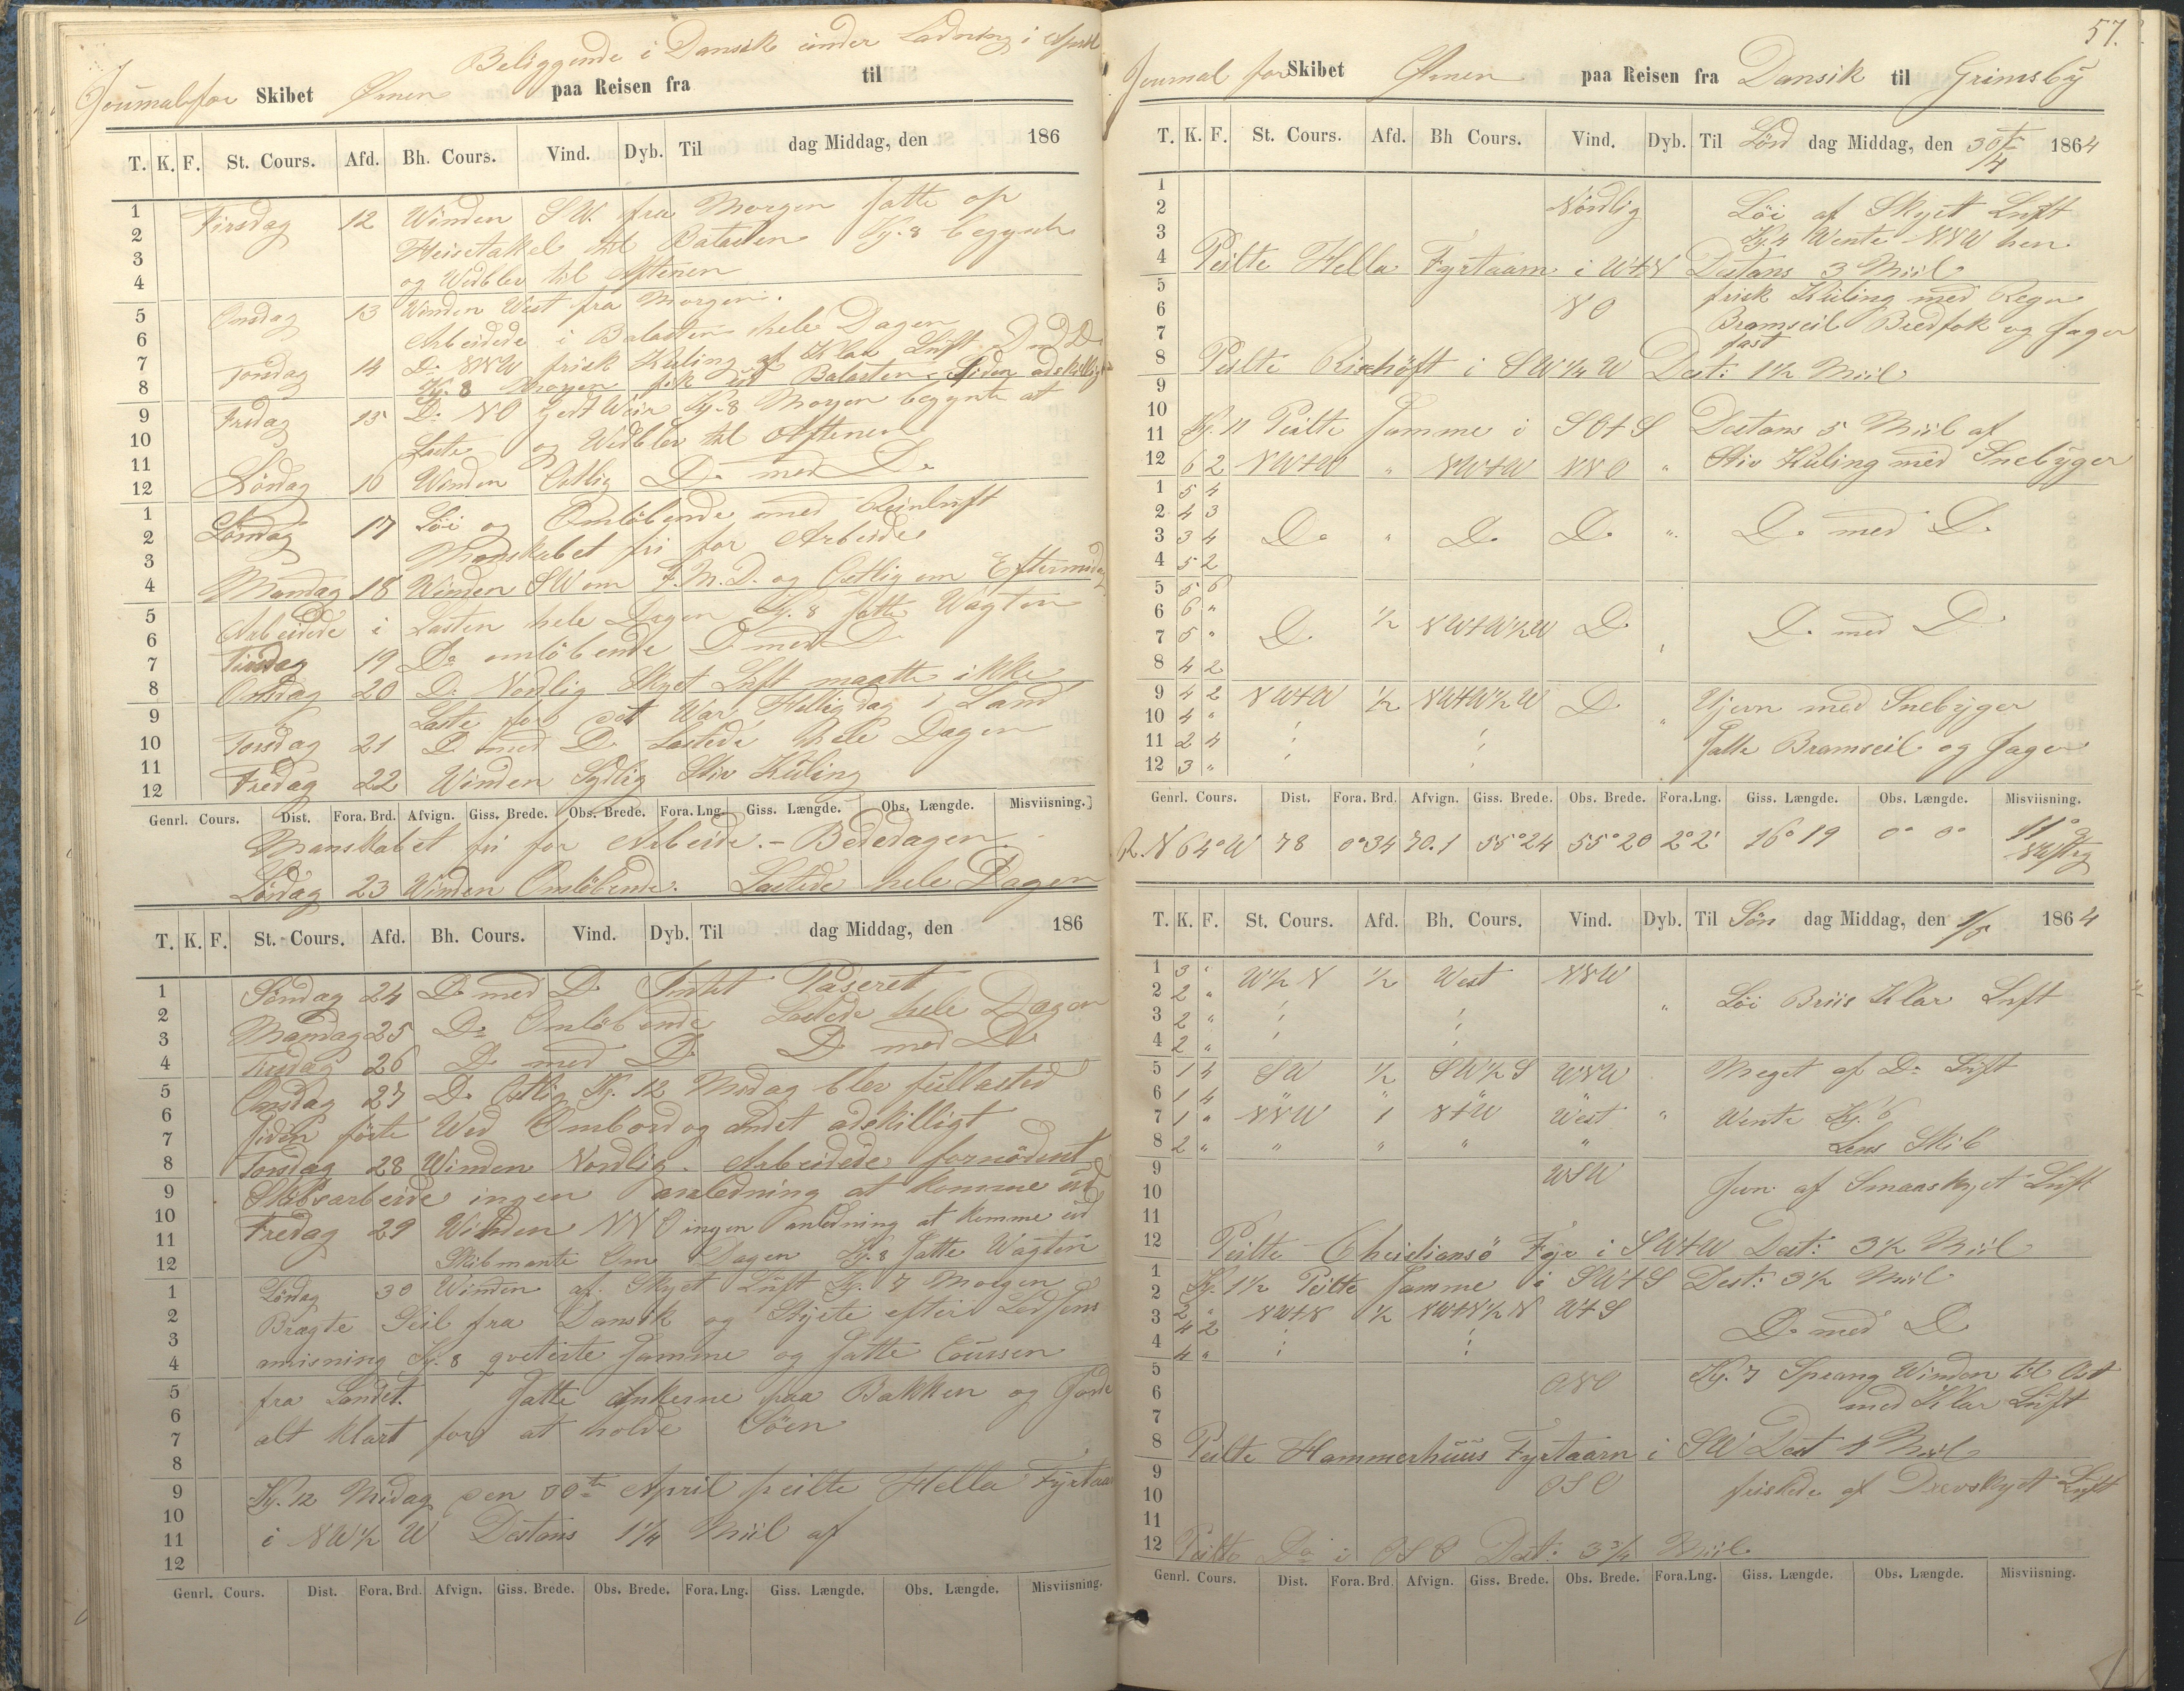 Beliggende i Dansik under Ladning i April
Journal for Skibet Ørnen paa Reisen fra til
T. K. F. St. Cours. Afd. Bh. Cours. Vind. Dyb. Til dag Middag, den 186
1 Tirsdag 12 Winden SW. fra Morgen Satte op
2 Heisetakel til Balasten Kj. 8 begynte
3 og Wedblev til Aftenen
4
5 Onsdag 13 Winden West fra Morgen.
6 Arbeidede i Balasten hele Dagen
7 Torsdag 14 Do NNW frisk Kuling af Klar Luft D med D
8 Kj. 8 Morgen fik ud Balasten Siden adskilligt
9 Fredag 15 Do NO Godt Weir Kj. 8 Morgen begynte at
10 Laste og Wedblev til Aftenen
11
12 Lördag 16 Winden Ostlig Do med Do
1 Söndag 17 Löi og Omlöbende med Reinluft
2 Mandskabet fri for Arbeide
3
4 Mandag 18 Winden SW om F.M.D. og Ostlig om Eftermidag
5 Arbeidede i Lasten hele Dagen Kj. 8 Satte Wagten
6
7 Tirsdag 19 Do omlöbende D med D
8 Onsdag 20 D. Nordlig Skyet Luft maatte ikke
9 Laste for det War Helligdag i Land
10 Torsdag 21 D med D Lastede hele Dagen
11
12 Fredag 22 Winden Sydlig Stiv Kuling
Genrl. Cours. Dist. Fora. Brd. Afvign. Giss. Brede. Obs. Brede. Fora. Lng. Giss. Længde. Obs. Længde. Misviisning.
Manskabet fri for Arbeide. - Bededagen.
Lördag 23 Winden Omlöbende. Lastede hele Dagen
T. K. F. St. Cours. Afd. Bh. Cours. Vind. Dyb. Til dag Middag, den 186
1 Söndag 24 D med D Intet Paseret
2 Mandag 25 Do Omlöbende Lastede hele Dagen
3
4 Tirsdag 26 D med D D med D
5 Onsdag 27 D. Ostlig Kj. 12 Midag blev fullasted
6 Siden förte Wed Ombord og andet adskilligt
7
8 Torsdag 28 Winden Nordlig. Arbeidede fornödent
9 Skibsarbeide ingen anledning at komme ud
10 Fredag 29 Winden NNO ingen anledning at komme ud
11
12 Skibmante Om Dagen Kj. 8 Satte Wagten
1 Lördag 30 Winden af Skyet Luft Kj. 7 Morgen
2 Bragte Seil fra Dansik og Styrte efter Lodsens
3
4 anvisning Kj. 8 qviterte Samme og Satte Coursen
5 fra Landet. Satte Ankerne paa Bakken og Gjorde
6 alt klart for at holde Söen
7
8
9 Kj. 12 Midag den 30te April peilte Hella Fyrtaarn
10
11 i NW½ W Distans 1¼ Miil af
12
Genrl. Cours. Dist. Fora. Brd. Afvign. Giss. Brede. Obs. Brede. Fora. Lng. Giss. Længde. Obs. Længde. Misviisning.
57.
Journal for Skibet Ørnen paa Reisen fra Dansik til Grimsby
T. K. F. St. Cours. Afd. Bh Cours. Vind. Dyb. Til Lörd dag Middag, den 30te/4 1864
1
2 Nördlig Löi af Skyet Luft
3 Kj. 4 Wente NNW hen
4 Peilte Hella Fyrtaarn i WtN Distans 3 Miil
5 frisk Kuling med Regn
6 NO Bramseil Bredfok og Jager
7 fast
8 Peilte Rixhöft i SW¼W Dist: 1½ Miil
9
10
11 Kj. 11 Peilte Samme i SOtS Distans 5 Miil af
12 6 2 NWtW " NWtW NNO " Stiv Kuling med Snebyger
1 5 4
2 4 3
3 3 4 Do " Do Do " Do med Do
4 5 2
5 5 6
6 6 "
7 5 " D ½ NWtW½W D " D. med D
8 4 2
9 4 2 NWtW ½ NWtW½W D " Ujevn med Snebyger
10 4 "
11 2 4 Satte Bramseil og Jager
12 3 "
Genrl. Cours. Dist. Fora. Brd. Afvign. Giss. Brede. Obs. Brede. Fora.Lng. Giss. Længde. Obs. Længde. Misviisning.
R. N 64° W 78 0°34 70.1 55°24 55°20 2°2' 16°19 0° 0° 11° NWstig
T. K. F. St. Cours. Afd. Bh. Cours. Vind. Dyb. Til Sön dag Middag, den 1/5 1864
1 3 " W½N ½ West NNW
2 2 " " Löi Briis Klar Luft
3 2 "
4 2 "
5 1 4 SW ½ SW½S WNW Meget af Do Luft
6 1 4 " " " "
7 1 " NNW 1 NtW West " Wente Kj. 6
8 2 " " " " " Lens Skib
9 WSW Jevn af Smaaskyet Luft
10
11
12 Peilte Christiansö Fyr i SWtW Dist: 3½ Miil
1 Kj. 1½ Peilte Samme i SWtS Dist: 3½ Miil
2 2 " NWtN ½ NWtN½N WtS
3 4 2 D. med D
4 4 "
5 Kj. 7 Sprang Winden til Ost
6 ONO med Klar Luft
7
8 Peilte Hammerhuus Fyrtaarn i SW Dist 4 Miil
9 OSO friskede af Drevskyet Luft
10
11
12 Peilte Do i OSO Dist: 3¾ Miil.
Genrl. Cours. Dist. Fora. Brd. Afvign. Giss. Brede. Obs. Brede. Fora.Lng. Giss. Længde. Obs. Længde. Misviisning.